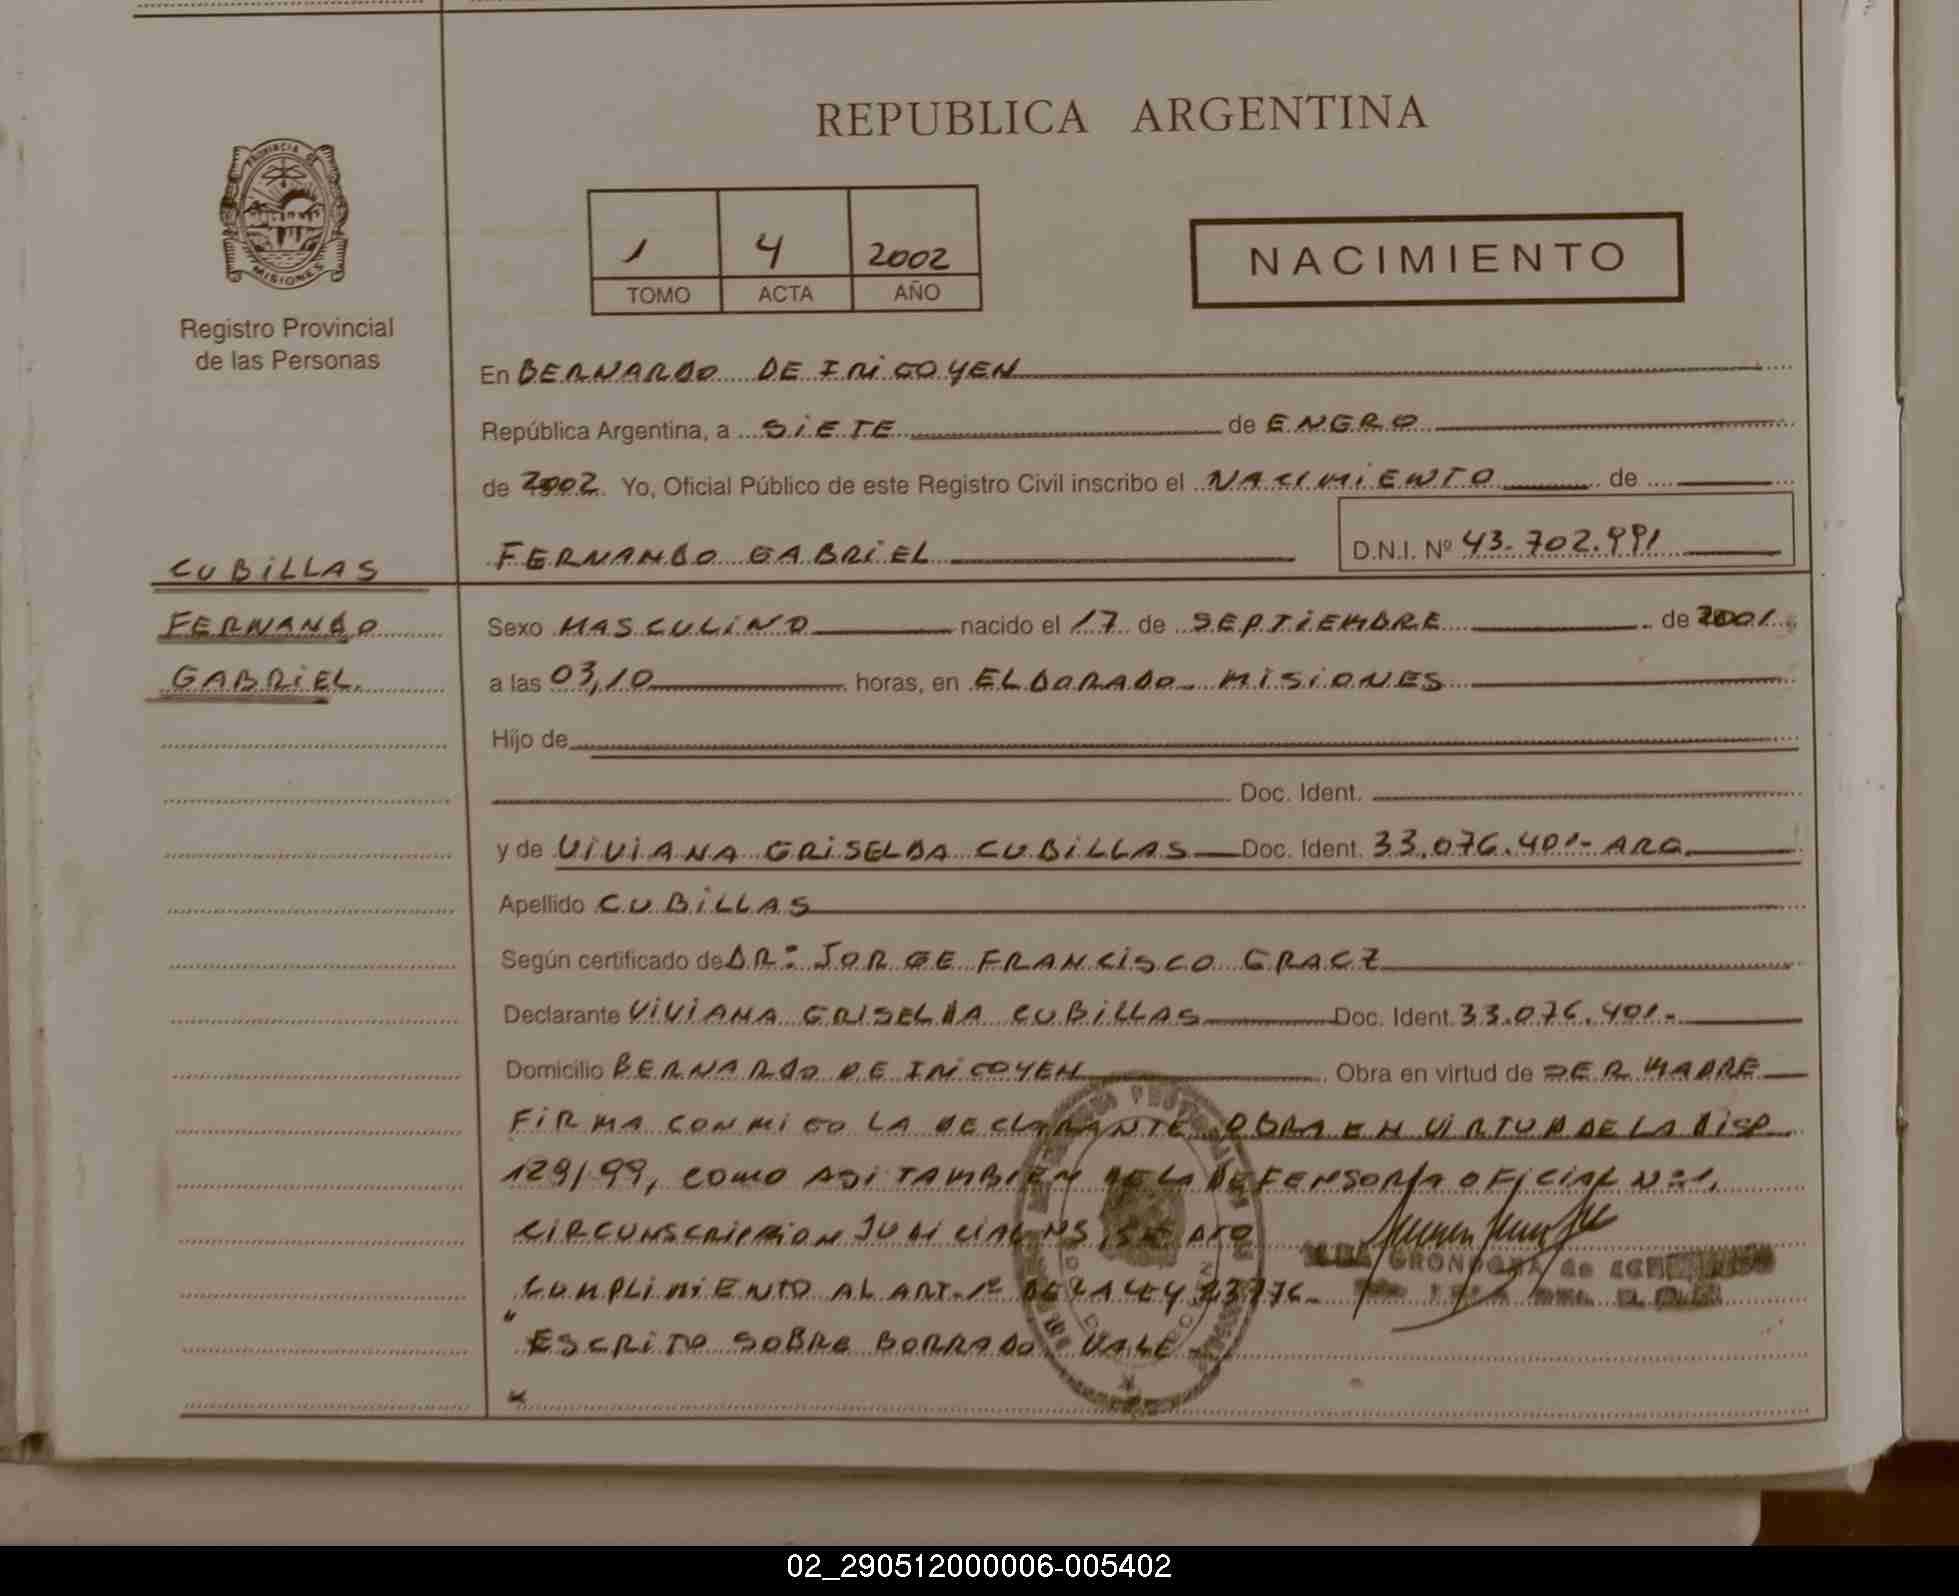 REPUBLICA ARGENTINA
PROVINCIA DE
MISIONES
Registro Provincial
de las Personas
1 4 2002
TOMO ACTA AÑO
NACIMIENTO
En BERNARDO DE IRIGOYEN
República Argentina, a SIETE de ENERO
de 2002 Yo, Oficial Público de este Registro Civil inscribo el NACIMIENTO de
FERNANDO GABRIEL D.N.I. Nº 43.702.991
CUBILLAS
FERNANDO
GABRIEL.
Sexo MASCULINO nacido el 17 de SEPTIEMBRE de 2001
a las 03,10 horas, en ELDORADO - MISIONES
Hijo de
Doc. Ident.
y de VIVIANA GRISELDA CUBILLAS Doc. Ident. 33.076.401- ARG.
Apellido CUBILLAS
Según certificado de DR: JORGE FRANCISCO GRACZ
Declarante VIVIANA GRISELDA CUBILLAS Doc. Ident. 33.076.401.-
Domicilio BERNARDO DE IRIGOYEN Obra en virtud de SER MADRE
FIRMA CONMIGO LA DECLARANTE OBRA EN VIRTUD DE LA DISP
129/99, COMO ASI TAMBIEN DE LA DEFENSORIA OFICIAL Nº 1.
CIRCUNSCRIPCION JUDICIAL SE DIO
GRONDONA de
CUMPLIMIENTO AL ART. 1º DE LA LEY 23776-
"ESCRITO SOBRE BORRADO VALE-
02_290512000006-005402